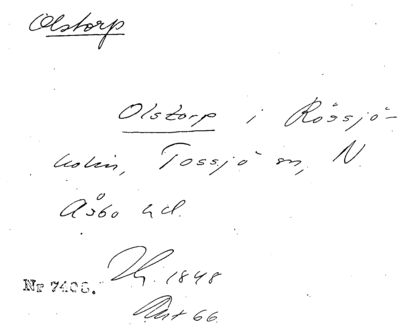 Olstorp
Olstorp i Rössjö-
holm, Tossjö sn, N.
Åsbo hd.
Hs. 1848
Nr 7408.
Avst 66.